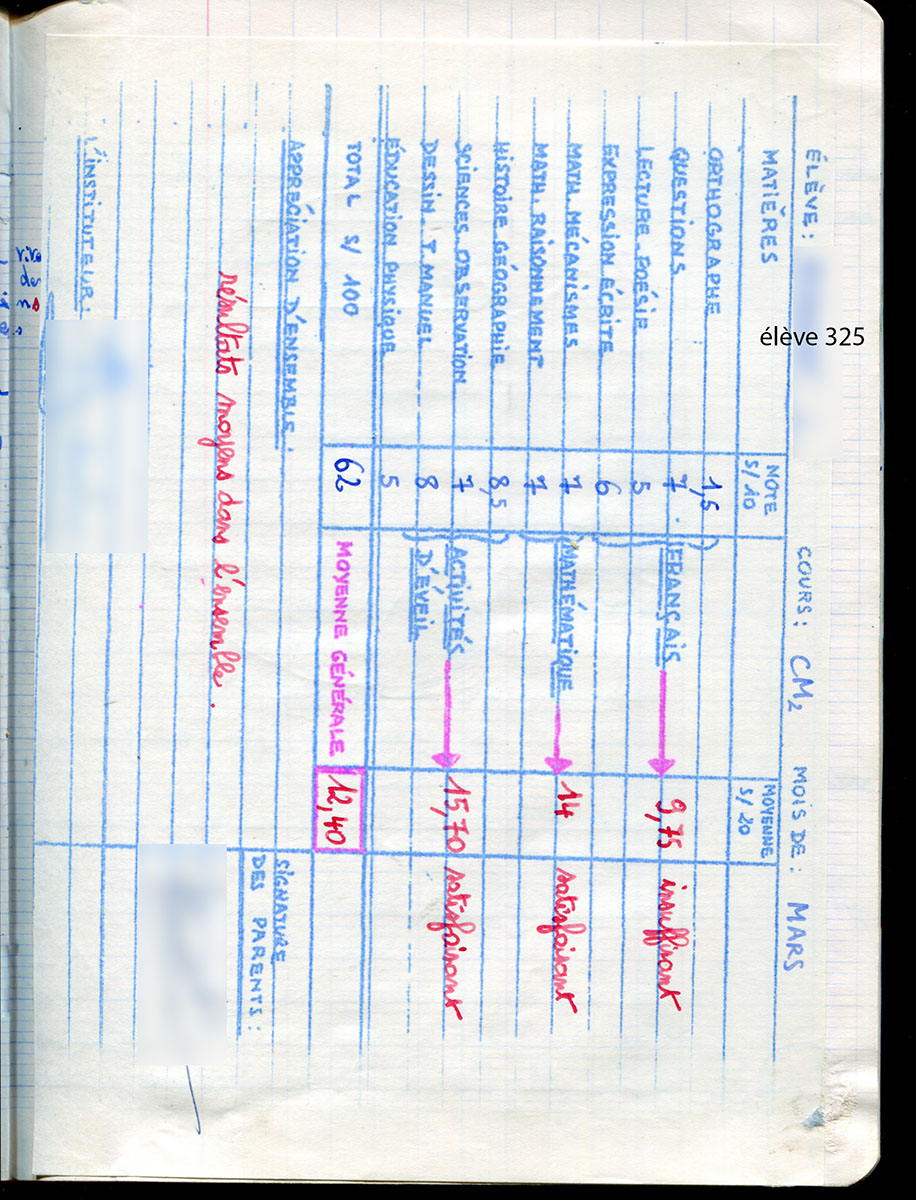 ÉLÈVE : COURS : CM2 MOIS DE : MARS
élève 325
MATIÈRES NOTE S/10 MOYENNE S/20
ORTHOGRAPHE 1,5
QUESTIONS 7 FRANÇAIS 9,75 insuffisant
LECTURE_POÉSIE 5
EXPRESSION ÉCRITE 6
MATH. MÉCANISMES 7 MATHÉMATIQUE 14 satisfaisant
MATH. RAISONNEMENT 7
HISTOIRE GÉOGRAPHIE 8,5
SCIENCES. OBSERVATION 7 ACTIVITÉS 15,70 satisfaisant
DESSIN . T. MANUEL 8 D'ÉVEIL
ÉDUCATION PHYSIQUE 5
TOTAL S/ 100 62 MOYENNE GÉNÉRALE 12,40
APPRÉCIATION D'ENSEMBLE . SIGNATURE
DES PARENTS :
résultats moyens dans l'ensemble.
L'INSTITUTEUR :